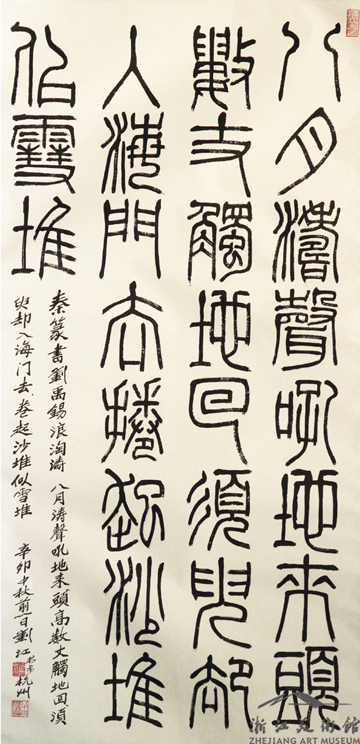 八月濤聲吼地來頭
數丈觸地回須臾却
入海門去捲起沙堆
似雪堆
秦篆書劉禹錫浪淘 八月涛聲吼地來頭高数丈觸地回須
臾却入海门去卷起沙堆似雪堆 辛卯中秋前一日劉江 杭州
浙江美術館
ZHEJIANG ART MUSEUM